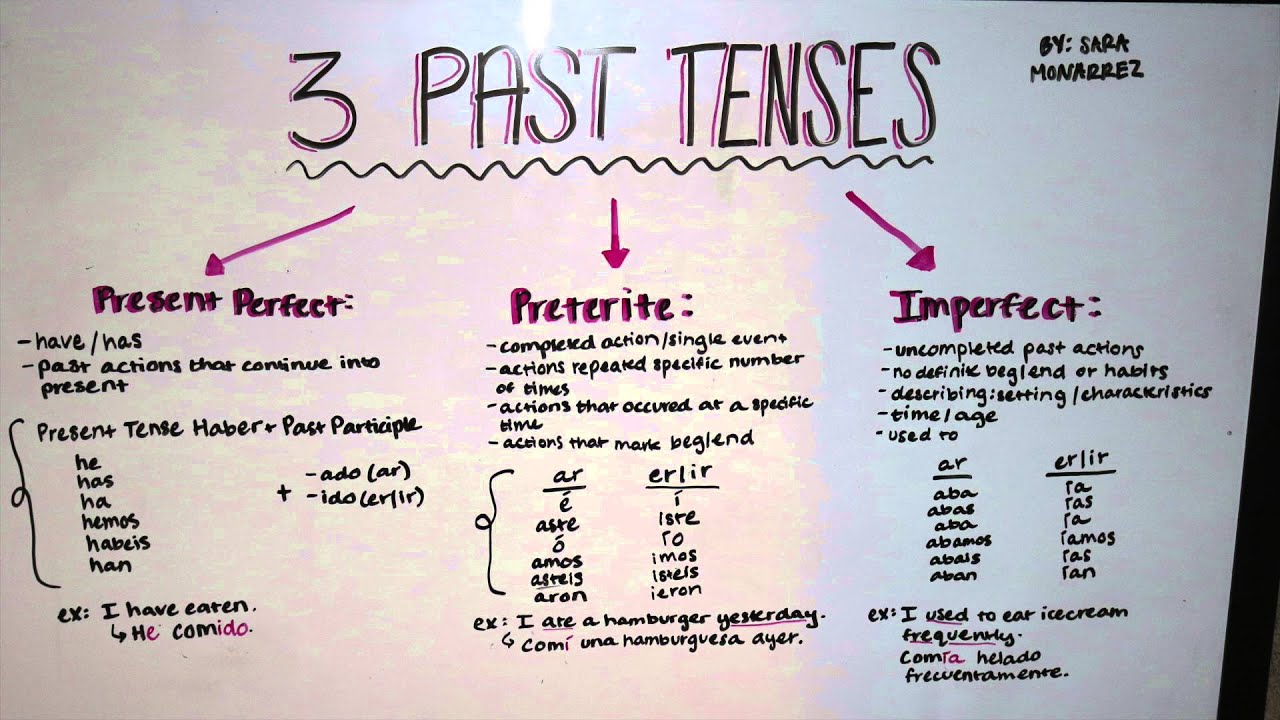 3 PAST TENSES
BY: SARA
MONARREZ
Present Perfect:
-have/has
-past actions that continue into
present
Present Tense Haber + Past Participle
he
has
ha
hemos
habeis
han
+ -ado (ar)
-ido (er/ir)
ex: I have eaten.
↳ He comido.
Preterite:
-completed action/single event
-actions repeated specific number
of times
-actions that occured at a specific
time
-actions that mark beg/end
ar er/ir
é í
aste iste
ó ío
amos imos
asteis isteis
aron ieron
ex: I ate a hamburger yesterday.
↳ Comí una hamburguesa ayer.
Imperfect:
-uncompleted past actions
-no definite beg/end or habits
-describing: setting/characteristics
-time/age
-used to
ar er/ir
aba ía
abas ías
aba ía
abamos íamos
abais ías
aban ían
ex: I used to eat icecream
frequently.
Comía helado
frecuentamente.